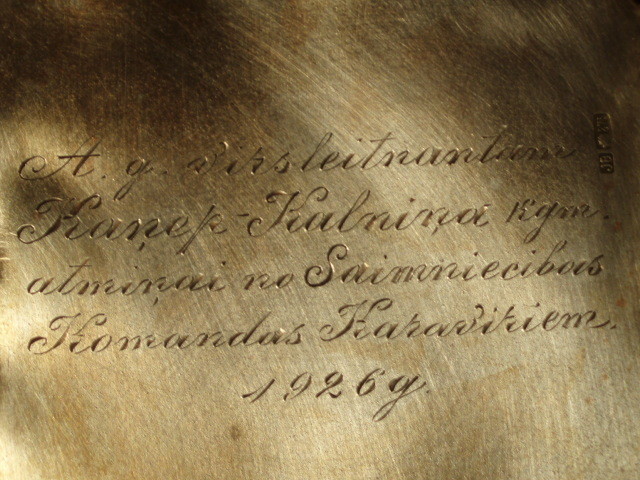 A. g. virsleitnantam
Kaņep-Kalniņa kgm.
atmiņai no Saimniecibas
Komandas Karaviŗiem.
1926 g.